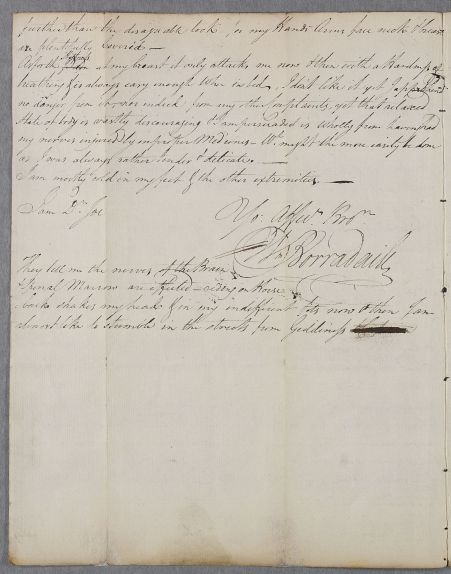 further than the disagreable look, for my Hands Arms face neck & breast
are plentifully Covered —
As for the tightness at my breast it only attacks me now & then with a Hardness of
breathing & is always easy enough when in bed, I don't like it yet I apprehend
no danger from it, nor indeed from my other Complaints, yet that relaxed
State of body is vastly discouraging & I am perswaded is Wholly from having had
my nerves injured by improper Medicines — Wch. might the more easily be done
as I was always rather tender & delicate. —
I am mostly cold in my feet & the other extremities —
I am Dr. Sir
Yo: Affecte. Bror.
Wm Borradaile
They tell me the nerves of the Brain
& Spinal Marrow are affected – riding on Horse
back shakes my head & in my indifferent fits now & then I am
almost like to stumble in the streets from Giddiness